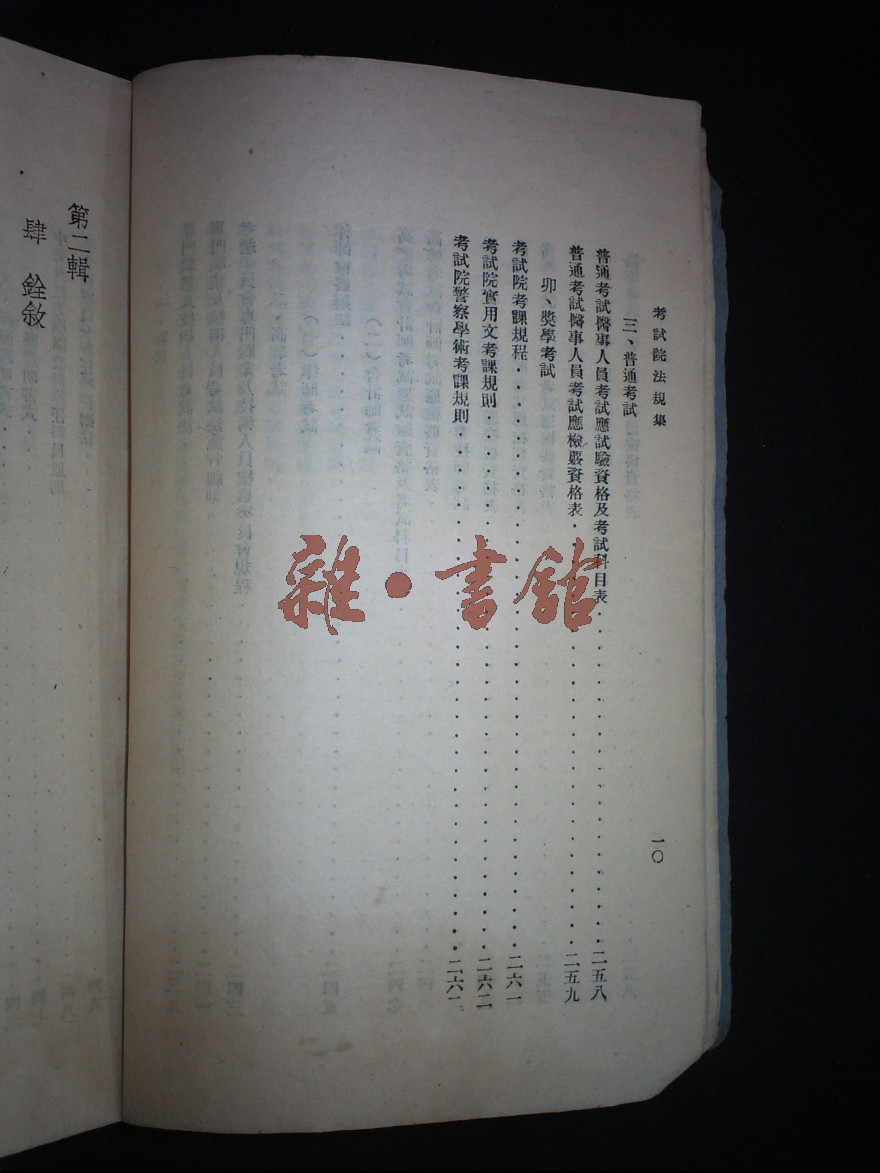 考試院法規集
一〇
三、普通考試
普通考試醫事人員考試應試驗資格及考試科目表・・・二五八
普通考試醫事人員考試應檢覈資格表・・・二五九
卯、獎學考試
考試院考課規程・・・二六一
考試院實用文考課規則・・・二六二
考試院警察學術考課規則・・・二六二
第二輯
肆 銓敘
雜・書館